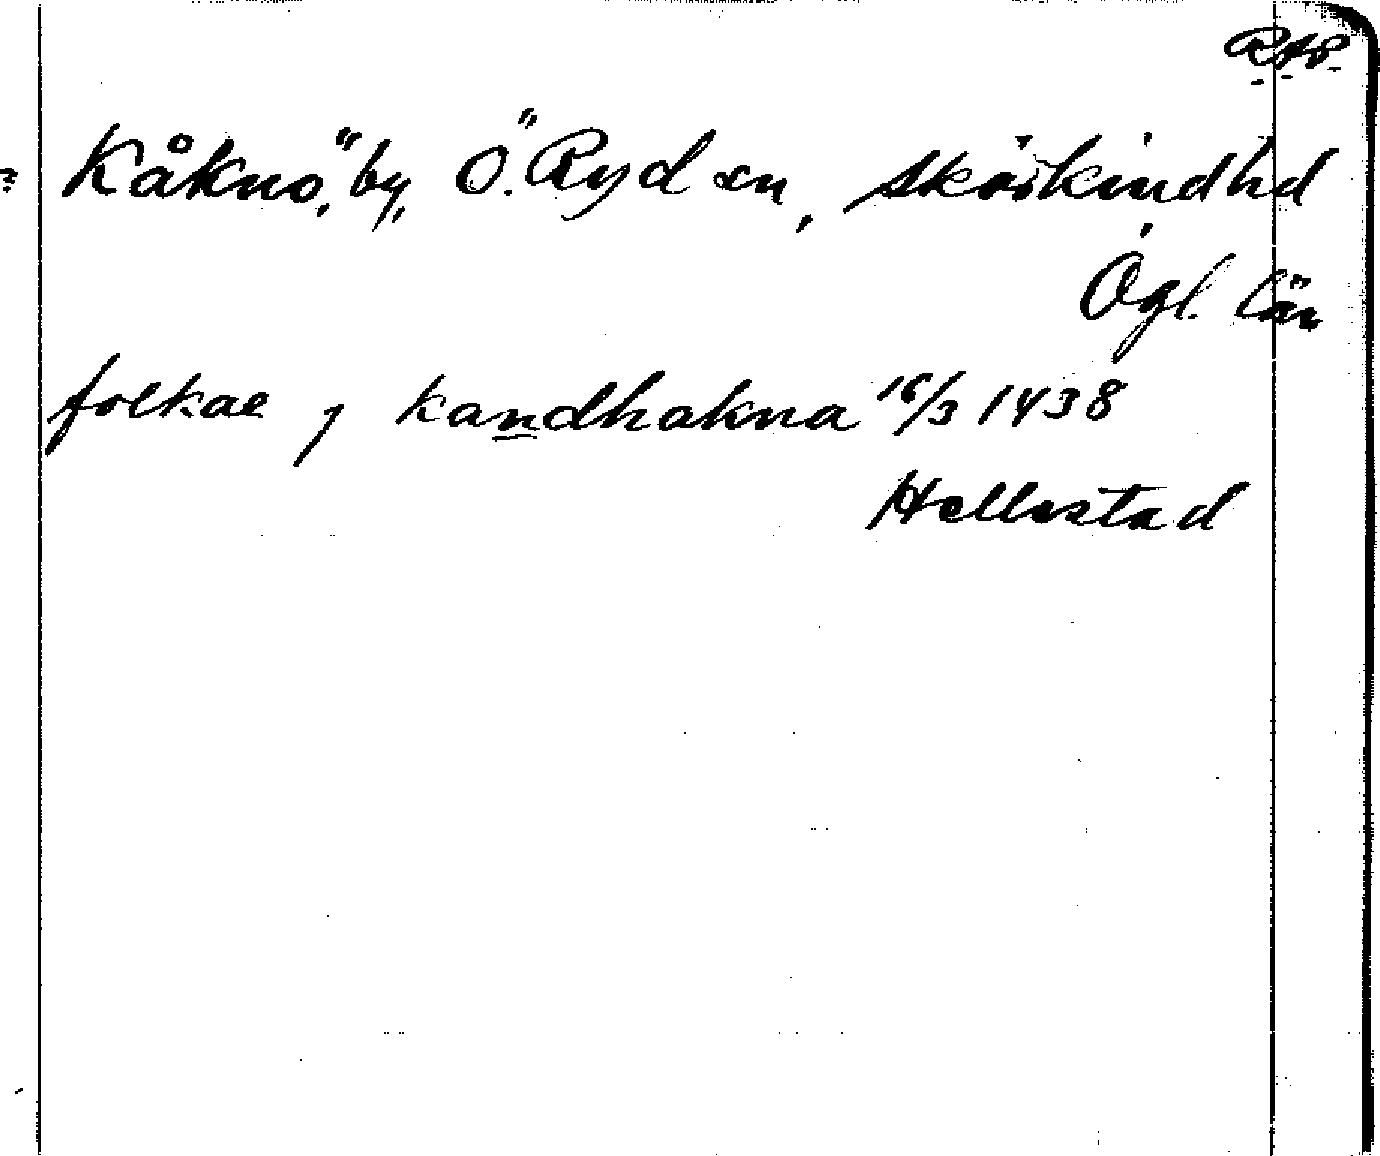 RAP.
Kåknö, by, Ö. Ryd sn, Skärkindhd
Ögl. län
folkae j kandhakna 16/3 1438
Hellestad